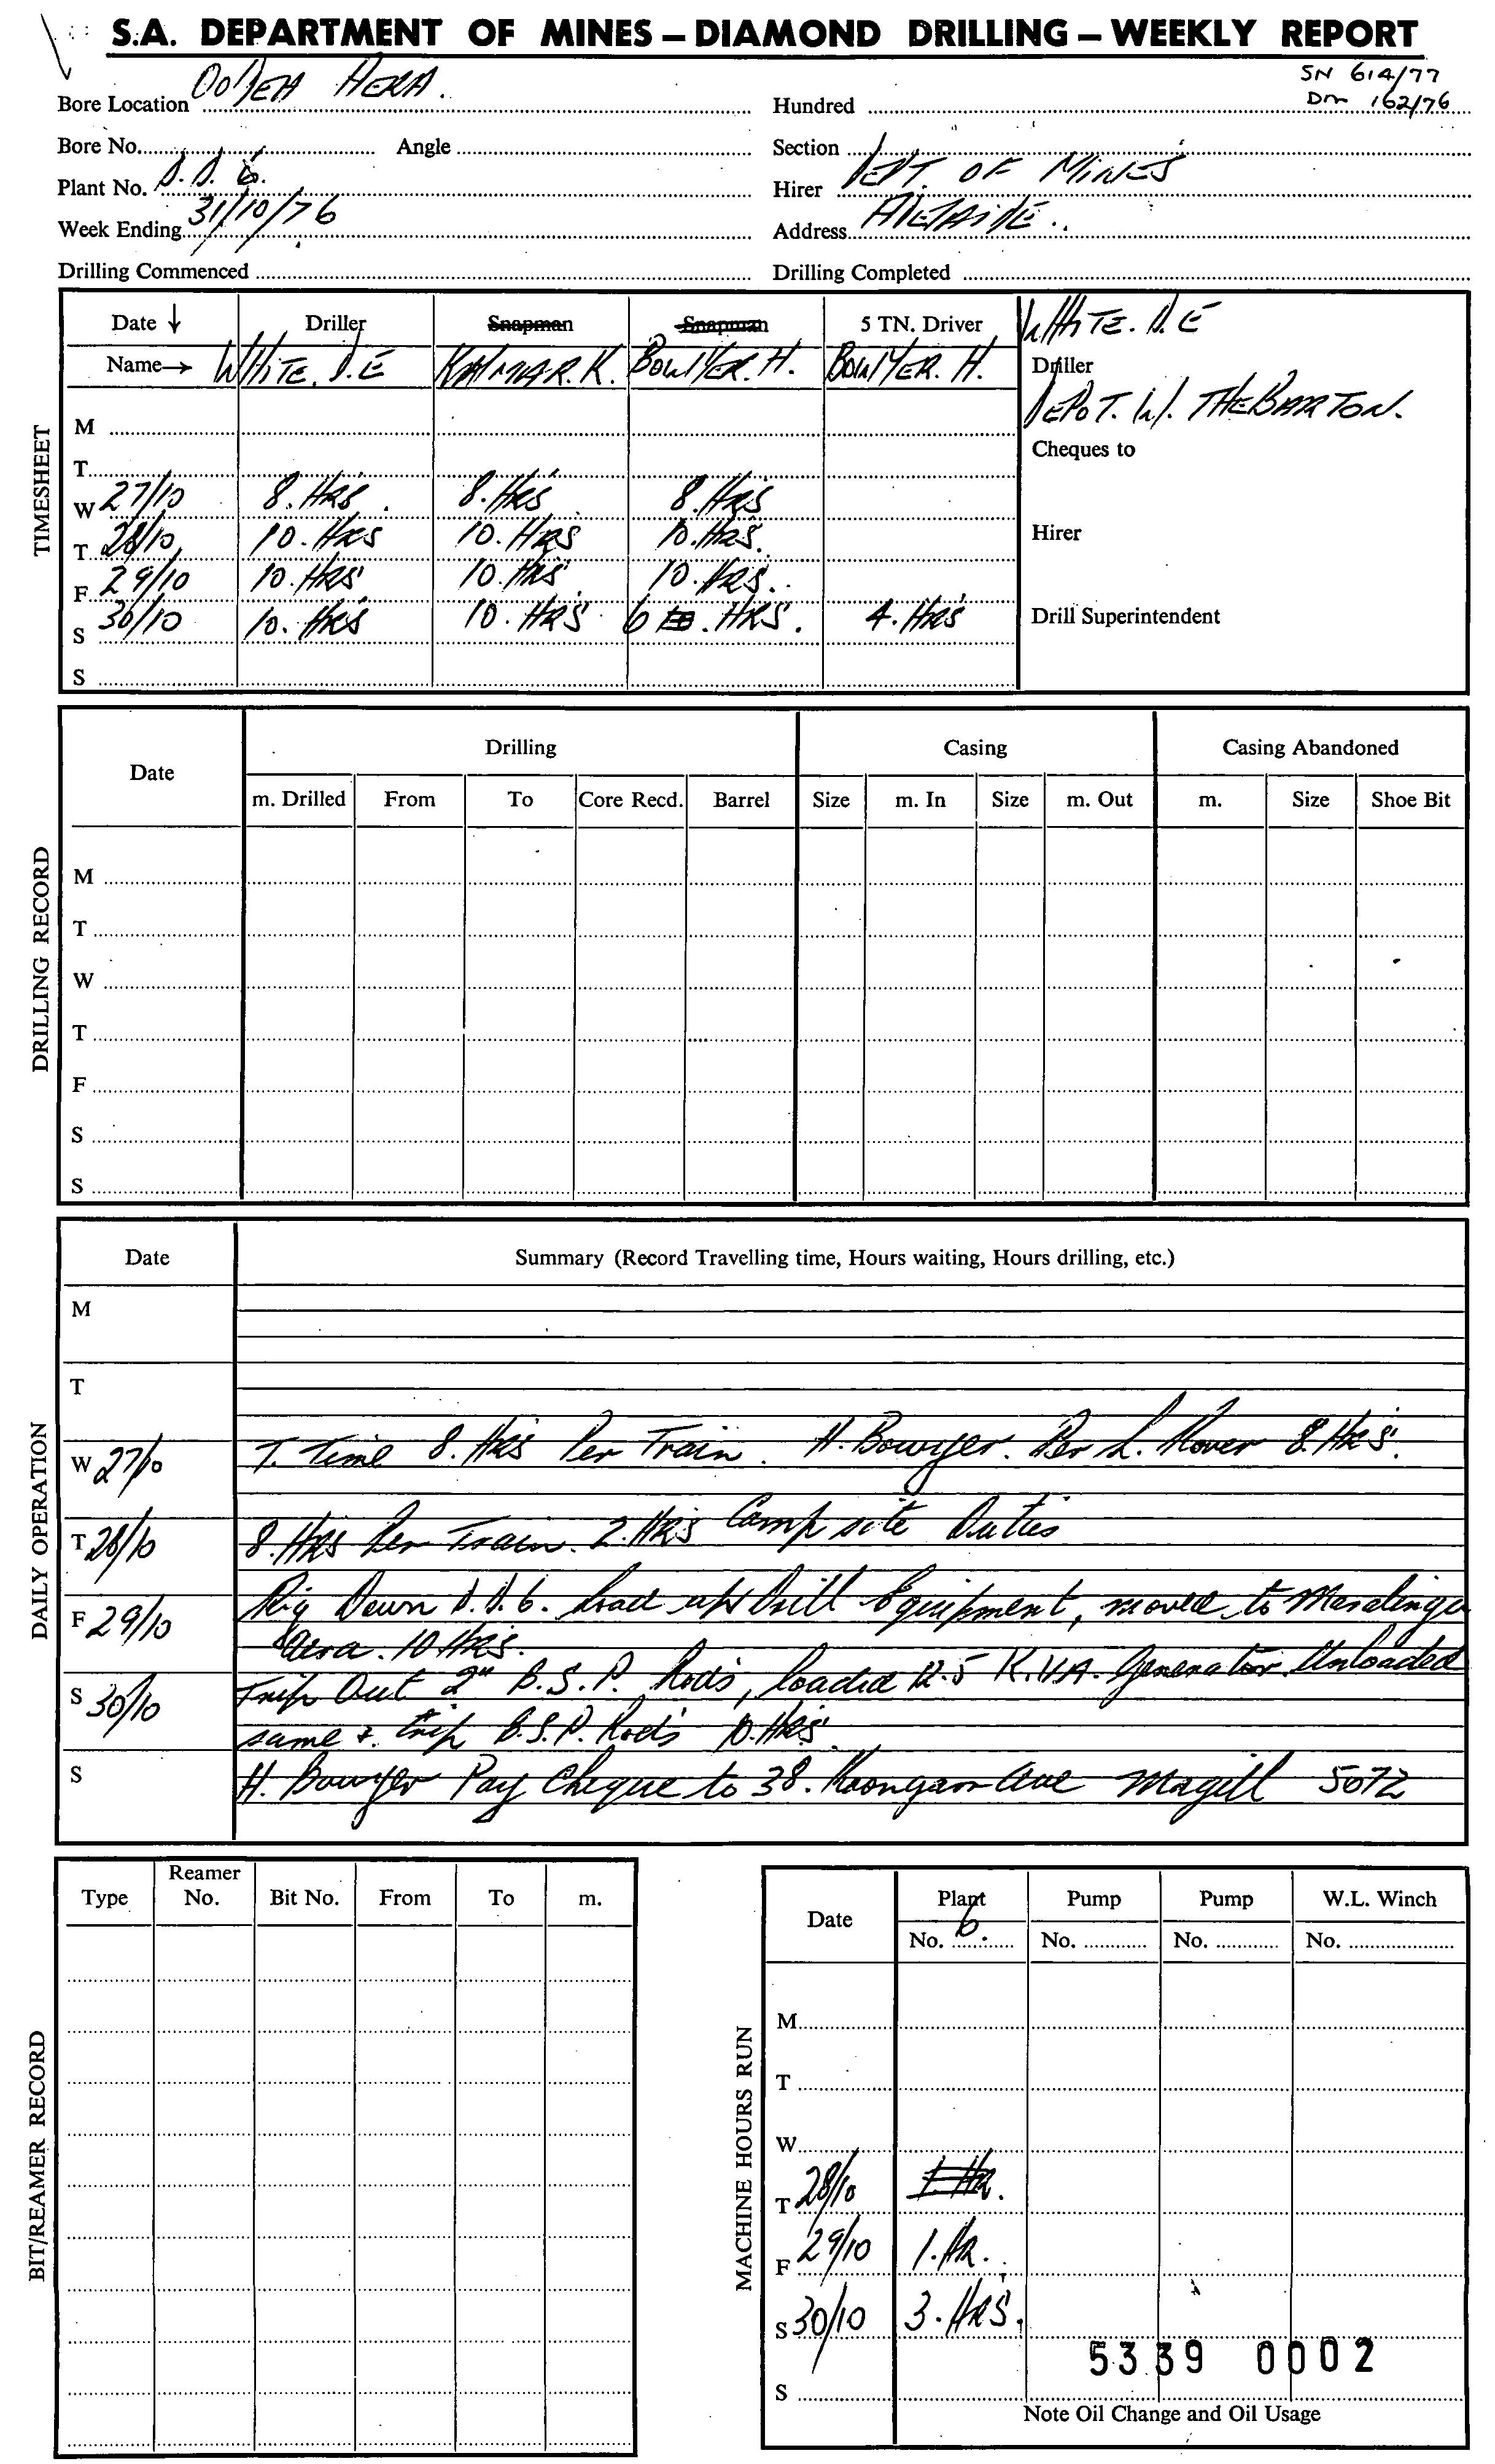 S.A. DEPARTMENT OF MINES – DIAMOND DRILLING – WEEKLY REPORT
SN 614/77
DM 162/76
Bore Location OOLDEA AERA.
Hundred
Bore No. Angle
Section
Plant No. D.D. 6.
Hirer DEPT. OF MINES
Week Ending 31/10/76
Address ADELAIDE.
Drilling Commenced
Drilling Completed
TIMESHEET
Date ↓ Driller Snapman Snapman 5 TN. Driver WHITE. D.E
Name→ WHITE. D.E KALMAR. K. BOWYER. H. BOWYER. H. Driller
DEPOT. W. THEBARTON.
M
Cheques to
T
W 27/10 8. HRS. 8. HRS 8. HRS
T 28/10 10. HRS 10. HRS 10. HRS. Hirer
F 29/10 10. HRS 10. HRS 10. HRS.
S 30/10 10. HRS 10. HRS 6 HRS. 4. HRS Drill Superintendent
S
DRILLING RECORD
Date Drilling Casing Casing Abandoned
m. Drilled From To Core Recd. Barrel Size m. In Size m. Out m. Size Shoe Bit
M
T
W
T
F
S
S
DAILY OPERATION
Date Summary (Record Travelling time, Hours waiting, Hours drilling, etc.)
M
T
W 27/10 T. Time 8. HRS Per Train. H. Bowyer. Per L. Rover 8. HRS.
T 28/10 8. HRS Per Train. 2. HRS Camp site Duties
F 29/10 Rig Down D.D. 6. Load up Drill Equipment, moved to Maralinga
Aera. 10 HRS.
S 30/10 Trip Out 2" B.S.P. Rods, loaded 12.5 K.V.A. Generator. Unloaded
same & trip B.S.P. Rods 10. HRS.
S H. Bowyer Pay Cheque to 38. Koongarra Ave Magill 5072
BIT/REAMER RECORD
Type Reamer No. Bit No. From To m.
MACHINE HOURS RUN
Date Plant Pump Pump W.L. Winch
No. 6. No. No. No.
M
T
W
T 28/10 1. HR.
F 29/10 1. HR.
S 30/10 3. HRS.
5339 0002
S
Note Oil Change and Oil Usage